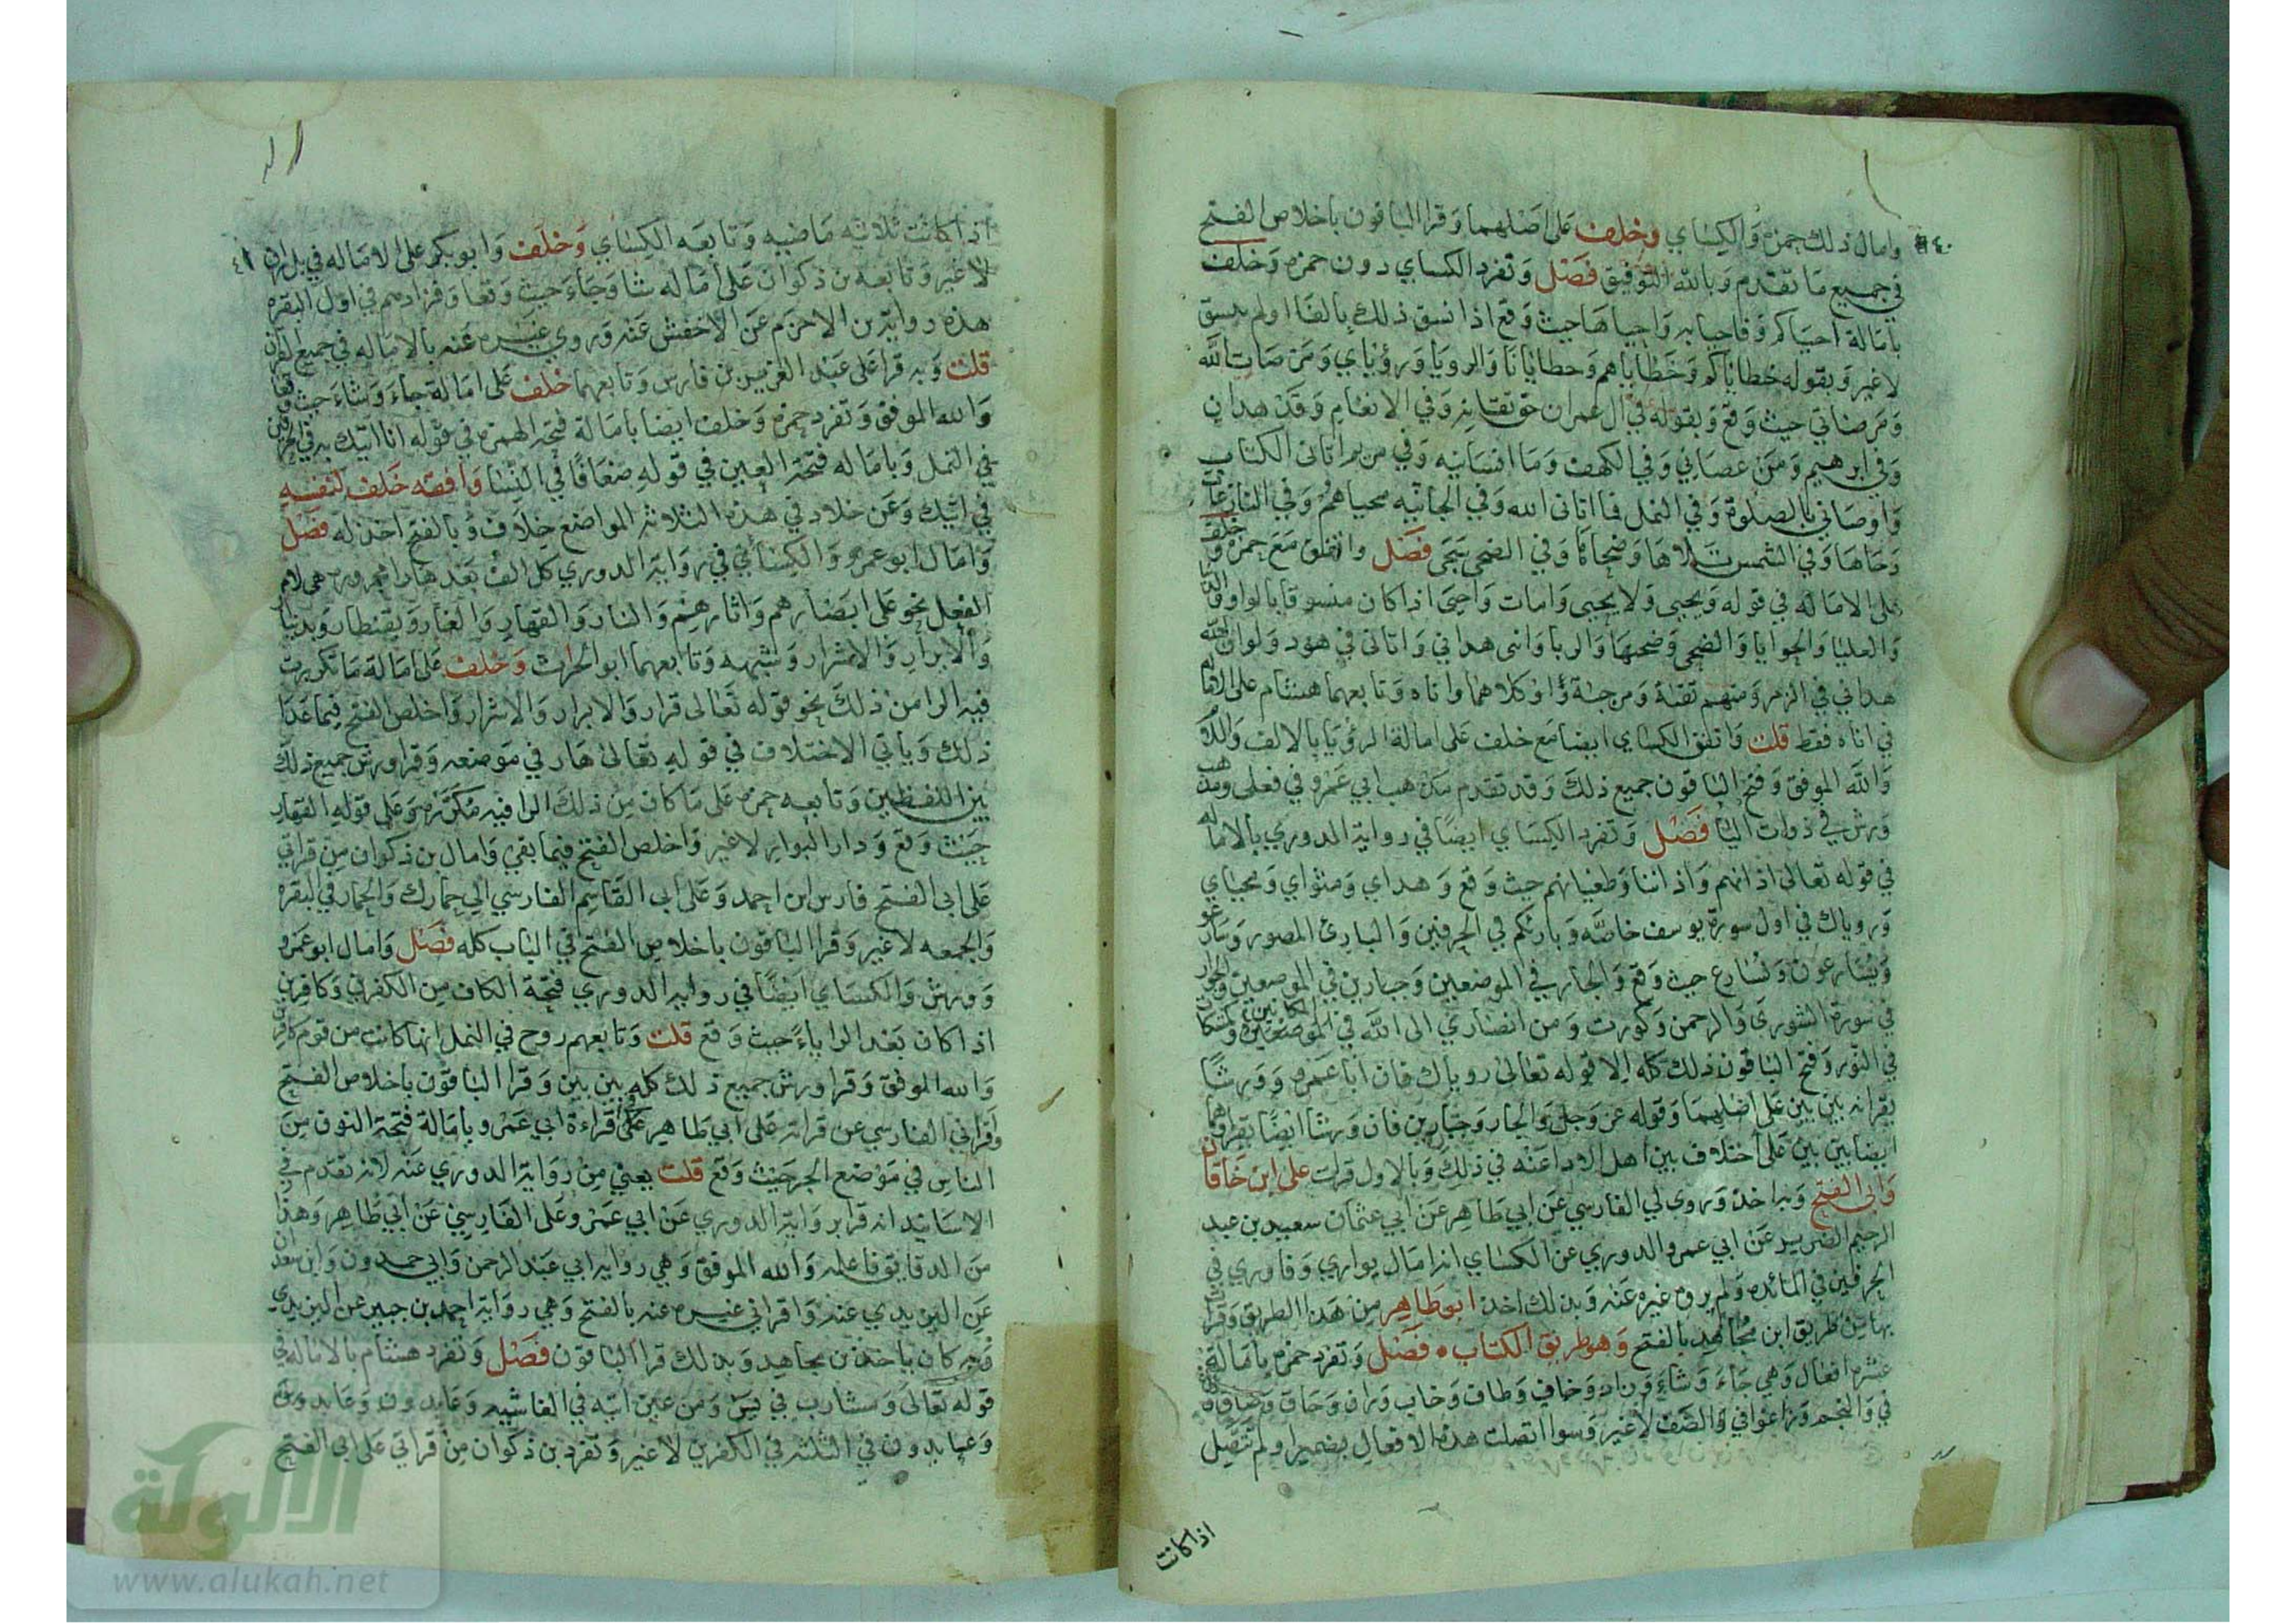 ٤٠
وامال ذلك حمزة والكساي وخلف على اصلهما وقرا الباقون باخلاص الفتح
في جميع ما تقدم وبالله التوفيق فصل وتفرد الكساي دون حمزة وخلف
بامالة احياكم وفاحيا به واحياها حيث وقع اذا نسق ذلك بالفا او لم ينسق
لا غير وبقوله خطاياكم وخطاياهم وخطايانا والرويا ورؤياي ومرضات الله
ومرضاتي حيث وقع وبقوله في ال عمران حق تقاته وفي الانعام وقد هدان
وفي ابرهيم ومن عصاني وفي الكهف وما انسانيه وفي مريم اتاني الكتاب
واوصاني بالصلوة وفي النمل فما اتاني الله وفي الجاثيه محياهم وفي النازعات
دحاها وفي الشمس تلاها وضحاها وفي الضحى سجى فصل واتفق مع حمزة وخلف
على الاماله في قوله ويحيى ولا يحيى وامات واحيى اذا كان منسوقا بالواو والدنيا
والعليا والحوايا والضحى وضحيها والربا وانى هداني واتاني في هود ولو ان الله
هداني في الزمر ومنهم تقاة ومزجاة او كلاهما واناه وتابعهما هشام على الاماله
في اناه فقط قلت واتفق الكساي ايضا مع خلف على امالة الرؤيا بالالف واللام
والله الموفق وفتح الباقون جميع ذلك وقد تقدم مذهب ابي عمرو في فعلى ومذهب
ورش في ذوات اليا فصل وتفرد الكساي ايضا في رواية الدوري بالاماله
في قوله تعالى اذانهم واذاننا وطغيانهم حيث وقع وهداي ومثواي ومحياي
وروياك في اول سورة يوسف خاصة وبارئكم في الحرفين والبارئ المصور وسارعوا
ويسارعون ونسارع حيث وقع والجار في الموضعين وجبارين في الموضعين والجوار
في سورة الشورى والرحمن وكورت ومن انصاري الى الله في الموضعين كمشكاة
في النور وفتح الباقون ذلك كله الا قوله تعالى روياك فان ابا عمرو وورشا
يقرانه بين بين على اصلهما وقوله عز وجل والجار وجبارين فان ورشا ايضا يقراهما
ايضا بين بين على اختلاف بين اهل الادا عنه في ذلك وبالاول قرات على ابن خاقان
وابي الفتح وبه اخذ وروى لي الفارسي عن ابي طاهر عن ابي عثمان سعيد بن عبد
الرحيم الضرير عن ابي عمرو الدوري عن الكساي انه امال يواري وفاوري في
الحرفين في المائده ولم يروه غيره عنه وبذلك اخذ ابو طاهر من هذا الطريق وقرات
بها من طريق ابن مجاهد بالفتح وهو طريق الكتاب ۰ فصل وتفرد حمزة بامالة
عشرة افعال وهي جاء وشاء وزاد وخاف وطاف وخاب وران وحاق وضاق وزاغ
في والنجم وزاغوا في والصف لا غير وسوا اتصلت هذه الافعال بضمير او لم تتصل
اذا كانت
٤١
اذا كانت ثلاثيه ماضيه وتابعه الكساي وخلف وابو بكر على الاماله في بل ران
لا غير وتابعه بن ذكوان على اماله شا وجاء حيث وقعا وفزادهم في اول البقره
هذه رواية بن الاخرم عن الاخفش عنه وروي غيره عنه بالاماله في جميع القران
قلت وبه قرا على عبد العزيز بن فارس وتابعهما خلف على امالة جاء وشاء حيث وقعا
والله الموفق وتفرد حمزة وخلف ايضا بامالة فتحة الهمزة في قوله انا اتيك به في الحرفين
في النمل وباماله فتحة العين في قوله ضعافا في النسا وافقه خلف لنفسه
في اتيك وعن خلاد في هذه الثلاثه المواضع خلاف وبالفتح اخذ له فصل
وامال ابو عمرو والكسائي في رواية الدوري كل الف بعدها را مجروره هي لام
الفعل نحو على ابصارهم واثارهم والنار والقهار والغار وبقنطار وبدينار
والابرار والاشرار وشبهه وتابعهما ابو الحرث وخلف على امالة ما تكررت
فيه الرا من ذلك نحو قوله تعالى قرار والابرار والاشرار واخلص الفتح فيما عدا
ذلك وياتي الاختلاف في قوله تعالى هار في موضعه وقرا ورش جميع ذلك
بين اللفظين وتابعه حمزه على ما كان من ذلك الرا فيه مكرره وعلى قوله القهار
حيث وقع ودار البوار لا غير واخلص الفتح فيما بقي وامال بن ذكوان من قراتي
على ابي الفتح فارس ابن احمد وعلى ابي القاسم الفارسي الى حمارك والحمار في البقره
والجمعه لا غير وقرا الباقون باخلاص الفتح في الباب كله فصل وامال ابو عمرو
وورش والكساي ايضا في رواية الدوري فتحة الكاف من الكفرين وكافرين
اذا كان بعد الرا ياء حيث وقع قلت وتابعهم روح في النمل انها كانت من قوم كافرين
والله الموفق وقرا ورش جميع ذلك كله بين بين وقرا الباقون باخلاص الفتح
واقراني الفارسي عن قراته على ابي طاهر على قراءة ابي عمرو بامالة فتحة النون من
الناس في موضع الجر حيث وقع قلت يعني من رواية الدوري عنه لانه تقدم في
الاسانيد انه قرا برواية الدوري عن ابي عمرو على الفارسي عن ابي طاهر وهذا
من الدقايق فاعلمه والله الموفق وهي رواية ابي عبد الرحمن وابي حمدون وابن سعدان
عن اليزيدي عنه واقراني غيره عنه بالفتح وهي رواية احمد بن جبير عن اليزيدي
وبه كان ياخذ بن مجاهد وبذلك قرا الباقون فصل وتفرد هشام بالاماله في
قوله تعالى ومشارب في يس ومن عين انيه في الغاشيه وعابدون وعابد
وعابدون في الثلثه في الكفرين لا غير وتفرد بن ذكوان من قراتي على ابي الفتح
الألوكة
www.alukah.net